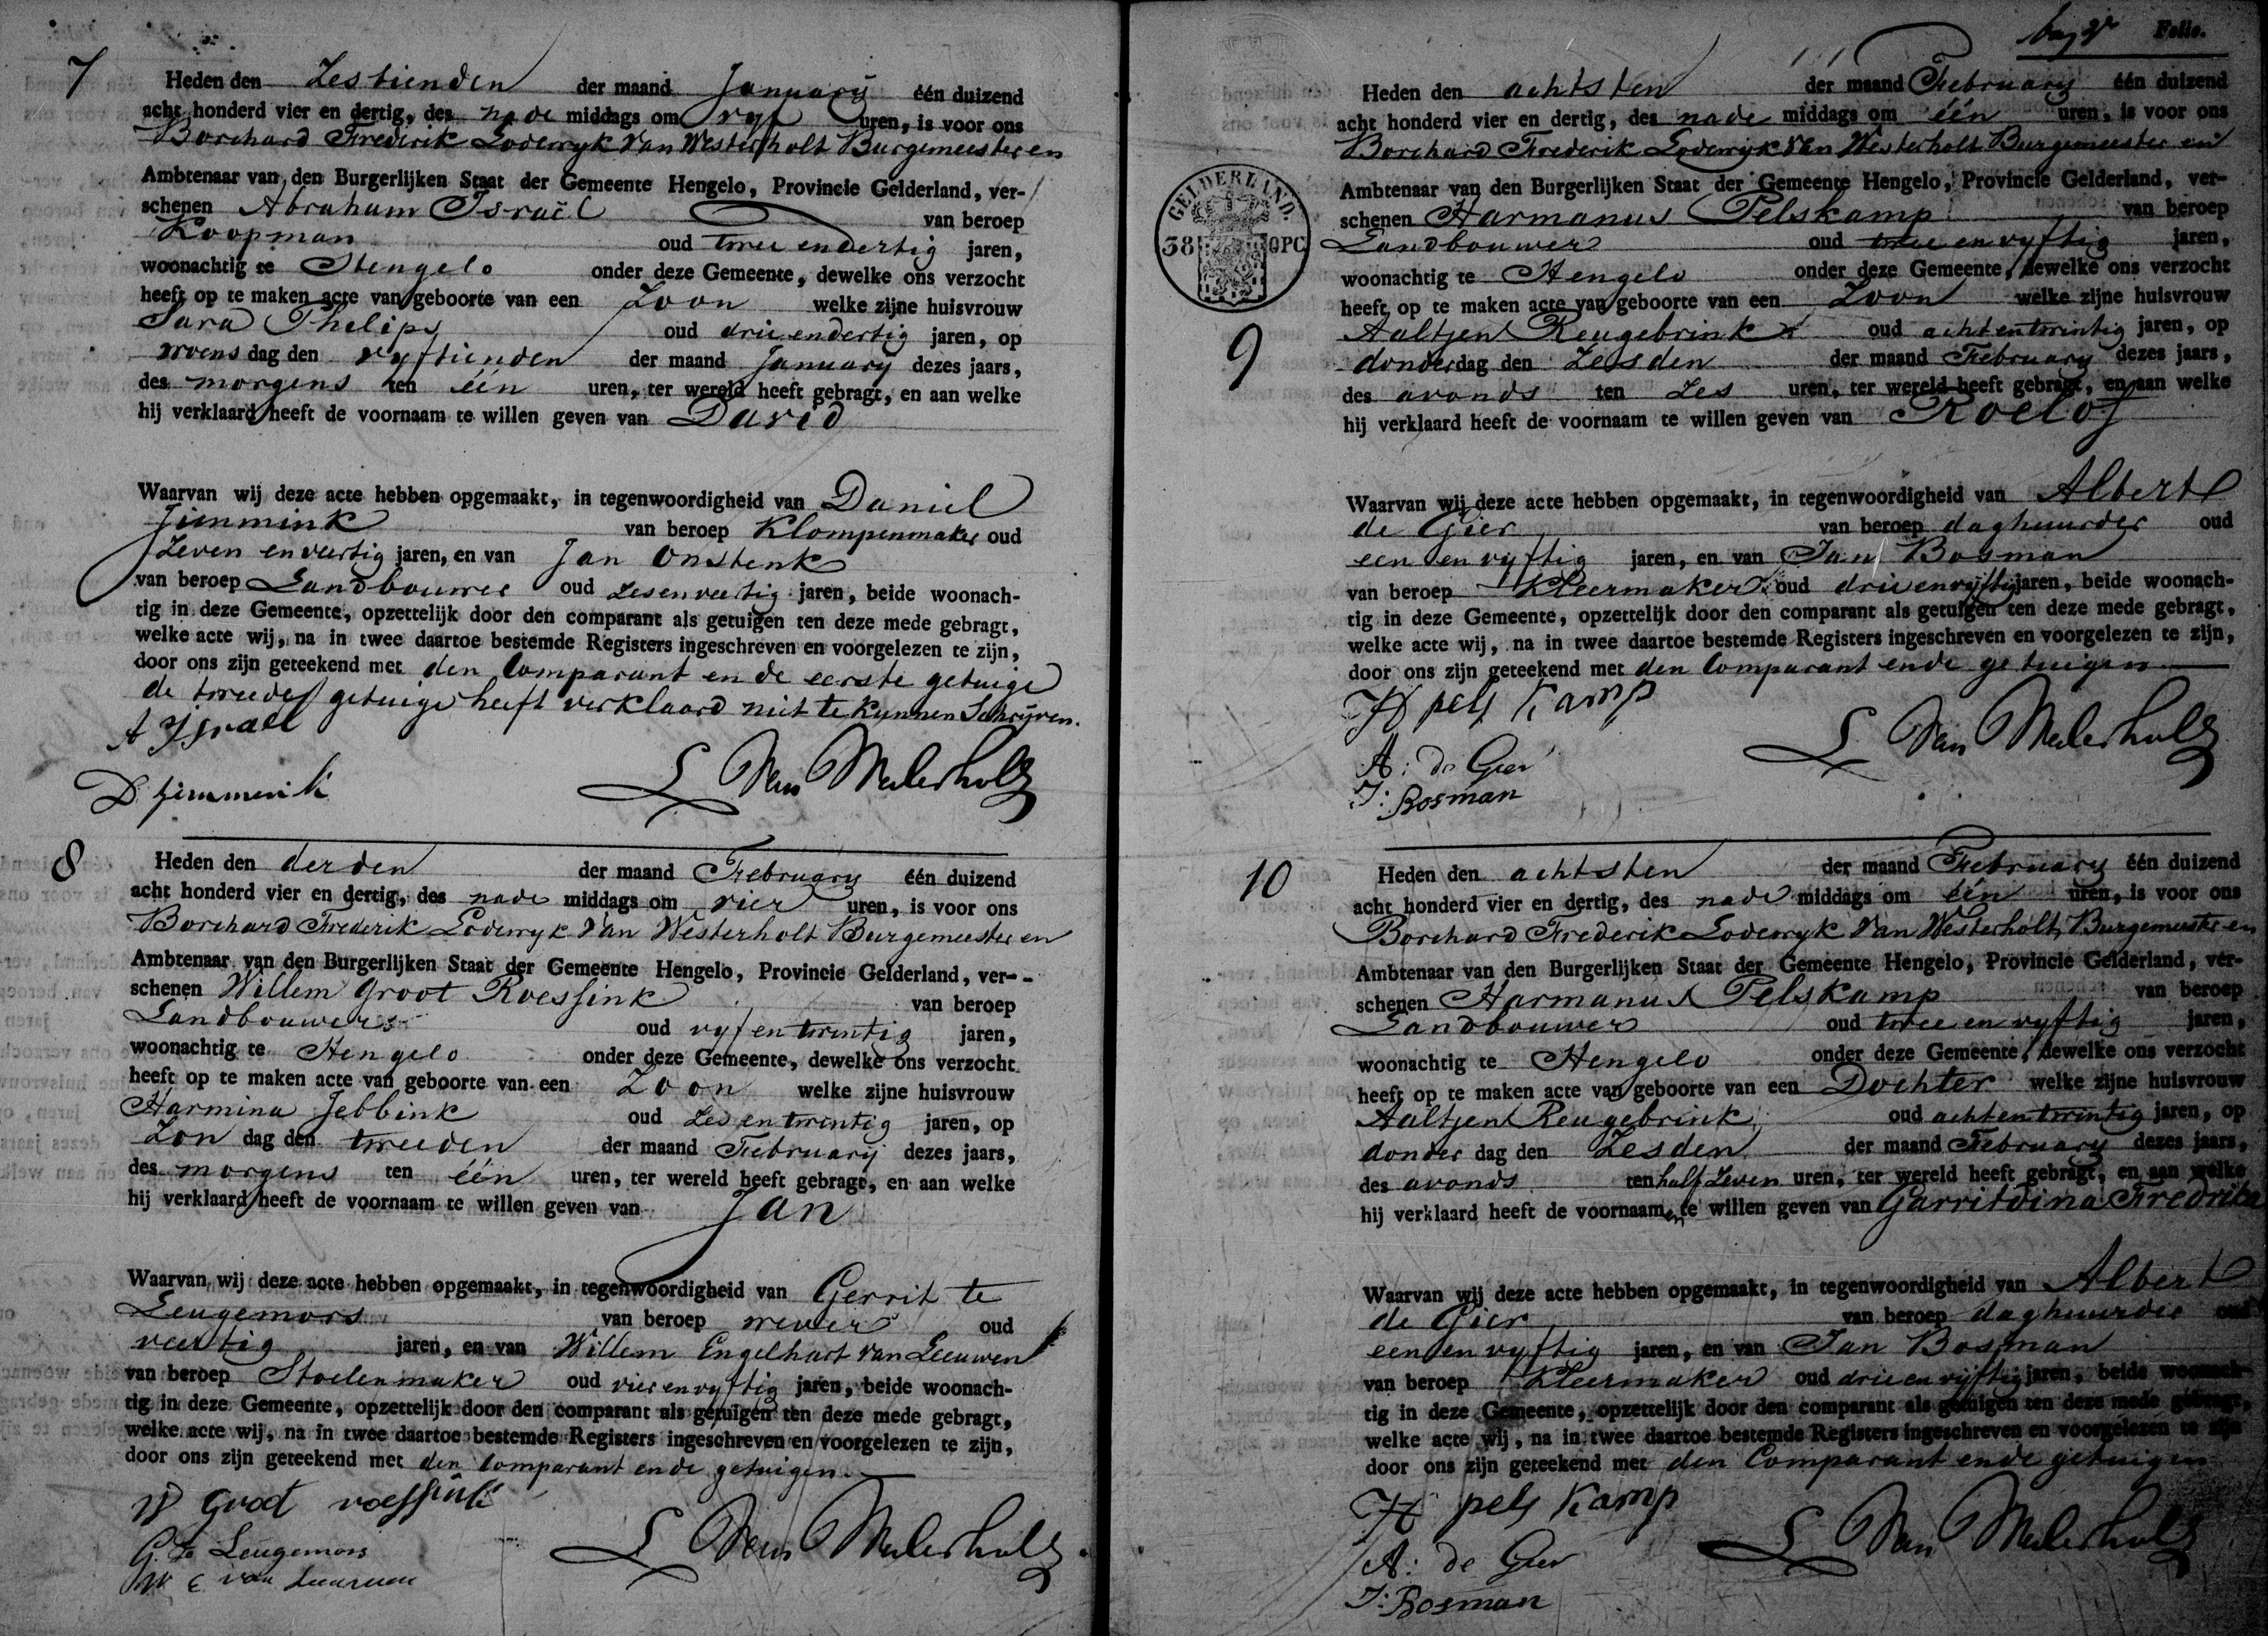 7
Heden den Zestienden der maand January één duizend
acht honderd vier en dertig, des nade middags om vyf uren, is voor ons
Borchard Frederik Lodewyk Van Westerholt Burgemeester en
Ambtenaar van den Burgerlijken Staat der Gemeente Hengelo, Provincie Gelderland, ver-
schenen Abraham Israël van beroep
Koopman oud twee endertig jaren,
woonachtig te Hengelo onder deze Gemeente, dewelke ons verzocht
heeft op te maken acte van geboorte van een Zoon welke zijne huisvrouw
Sara Philips oud drie endertig jaren, op
woens dag den vyftienden der maand January dezes jaars,
des morgens ten één uren, ter wereld heeft gebragt, en aan welke
hij verklaard heeft de voornaam te willen geven van David
Waarvan wij deze acte hebben opgemaakt, in tegenwoordigheid van Daniel
Jimmink van beroep Klompenmaker oud
Zeven en veertig jaren, en van Jan Onstenk
van beroep Landbouwer oud zesenveertig jaren, beide woonach-
tig in deze Gemeente, opzettelijk door den comparant als getuigen ten deze mede gebragt,
welke acte wij, na in twee daartoe bestemde Registers ingeschreven en voorgelezen te zijn,
door ons zijn geteekend met den Comparant en de eerste getuige
de tweede getuige heeft verklaard niet te kunnen Schryven.
A Ysraël
D Jimmenk
L Van Westerholt
8
Heden den derden der maand February één duizend
acht honderd vier en dertig, des nade middags om vier uren, is voor ons
Borchard Frederik Lodewyk Van Westerholt Burgemeester en
Ambtenaar van den Burgerlijken Staat der Gemeente Hengelo, Provincie Gelderland, ver-
schenen Willem Groot Roessink van beroep
Landbouwer oud vyf en twintig jaren,
woonachtig te Hengelo onder deze Gemeente, dewelke ons verzocht
heeft op te maken acte van geboorte van een Zoon welke zijne huisvrouw
Harmina Jebbink oud Zes en twintig jaren, op
Zon dag den tweeden der maand February dezes jaars,
des morgens ten één uren, ter wereld heeft gebragt, en aan welke
hij verklaard heeft de voornaam te willen geven van Jan
Waarvan wij deze acte hebben opgemaakt, in tegenwoordigheid van Gerrit te
Leugemors van beroep wever oud
veertig jaren, en van Willem Engelhart van Leeuwen
van beroep Stoelenmaker oud vier en vyftig jaren, beide woonach-
tig in deze Gemeente, opzettelijk door den comparant als getuigen ten deze mede gebragt,
welke acte wij, na in twee daartoe bestemde Registers ingeschreven en voorgelezen te zijn,
door ons zijn geteekend met den Comparant ende getuigen
W Groot roessink
G. te Leugemors
W E van Leeuwen
L Van Westerholt
Folio.
GELDERLAND.
38 OPC
9
Heden den achtsten der maand February één duizend
acht honderd vier en dertig, des nade middags om één uren, is voor ons
Borchard Frederik Lodewyk Van Westerholt Burgemeester en
Ambtenaar van den Burgerlijken Staat der Gemeente Hengelo, Provincie Gelderland, ver-
schenen Harmanus Pelskamp van beroep
Landbouwer oud twee en vyftig jaren,
woonachtig te Hengelo onder deze Gemeente, dewelke ons verzocht
heeft op te maken acte van geboorte van een Zoon welke zijne huisvrouw
Aaltjen Reugebrink oud acht entwintig jaren, op
donderdag den Zesden der maand February dezes jaars,
des avonds ten Zes uren, ter wereld heeft gebragt, en aan welke
hij verklaard heeft de voornaam te willen geven van Roelof
Waarvan wij deze acte hebben opgemaakt, in tegenwoordigheid van Albert
de Gier van beroep daghuurder oud
een en vyftig jaren, en van Jan Bosman
van beroep Kleermaker oud drie envyftig jaren, beide woonach-
tig in deze Gemeente, opzettelijk door den comparant als getuigen ten deze mede gebragt,
welke acte wij, na in twee daartoe bestemde Registers ingeschreven en voorgelezen te zijn,
door ons zijn geteekend met den Comparant ende getuigen
H pels Kamp
A: de Gier
J: Bosman
L Van Westerholt
10
Heden den achtsten der maand February één duizend
acht honderd vier en dertig, des nade middags om één uren, is voor ons
Borchard Frederik Lodewyk Van Westerholt Burgemeester en
Ambtenaar van den Burgerlijken Staat der Gemeente Hengelo, Provincie Gelderland, ver-
schenen Harmanus Pelskamp van beroep
Landbouwer oud twee en vyftig jaren,
woonachtig te Hengelo onder deze Gemeente, dewelke ons verzocht
heeft op te maken acte van geboorte van een Dochter welke zijne huisvrouw
Aaltjen Reugebrink oud acht entwintig jaren, op
donder dag den Zesden der maand February dezes jaars,
des avonds ten half Zeven uren, ter wereld heeft gebragt, en aan welke
hij verklaard heeft de voornaamen te willen geven van Garritdina Fredrika
Waarvan wij deze acte hebben opgemaakt, in tegenwoordigheid van Albert
de Gier van beroep daghuurder oud
een en vyftig jaren, en van Jan Bosman
van beroep Kleermaker oud drie en vyftig jaren, beide woonach-
tig in deze Gemeente, opzettelijk door den comparant als getuigen ten deze mede gebragt,
welke acte wij, na in twee daartoe bestemde Registers ingeschreven en voorgelezen te zijn
door ons zijn geteekend met den Comparant ende getuigen
H pels Kamp
A: de Gier
J: Bosman
L Van Westerholt